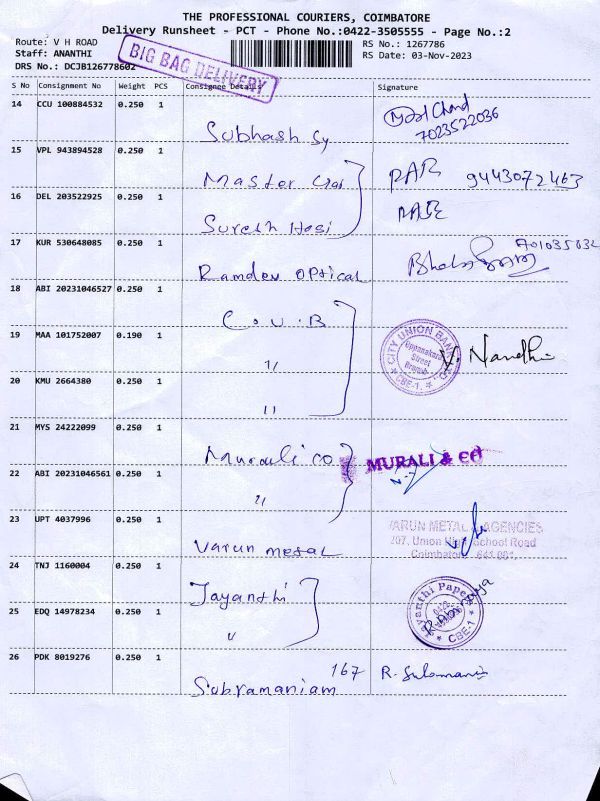 THE PROFESSIONAL COURIERS, COIMBATORE
Delivery Runsheet - PCT - Phone No.:0422-3505555 - Page No.:2
Route: V H ROAD
Staff: ANANTHI
DRS No.: DCJB126778602
BIG BAG DELIVERY
RS No.: 1267786
RS Date: 03-Nov-2023
S No Consignment No Weight PCS Consignee Details Signature
14 CCU 100884532 0.250 1 Subhash Sy
Chand
7023522036
15 VPL 943894528 0.250 1 Master
9443072463
16 DEL 203522925 0.250 1 Suresh Hosi
17 KUR 530648085 0.250 1 Ramdev optical
18 ABI 20231046527 0.250 1 C.U.B
19 MAA 101752007 0.190 1 "
CITY UNION BANK
Oppanakara
Street
Branch
CBE-1.
V. Nandhi
20 KMU 2664380 0.250 1 "
21 MYS 24222099 0.250 1 Murali co
MURALI & CO
22 ABI 20231046561 0.250 1 "
23 UPT 4037996 0.250 1 Varun metal
VARUN METAL AGENCIES
207, Union High School Road
Coimbatore - 641 001.
24 TNJ 1160004 0.250 1 Jayanthi
Jayanthi Paper
CBE-1
25 EDQ 14978234 0.250 1 "
26 PDK 8019276 0.250 1 Subramaniam 167